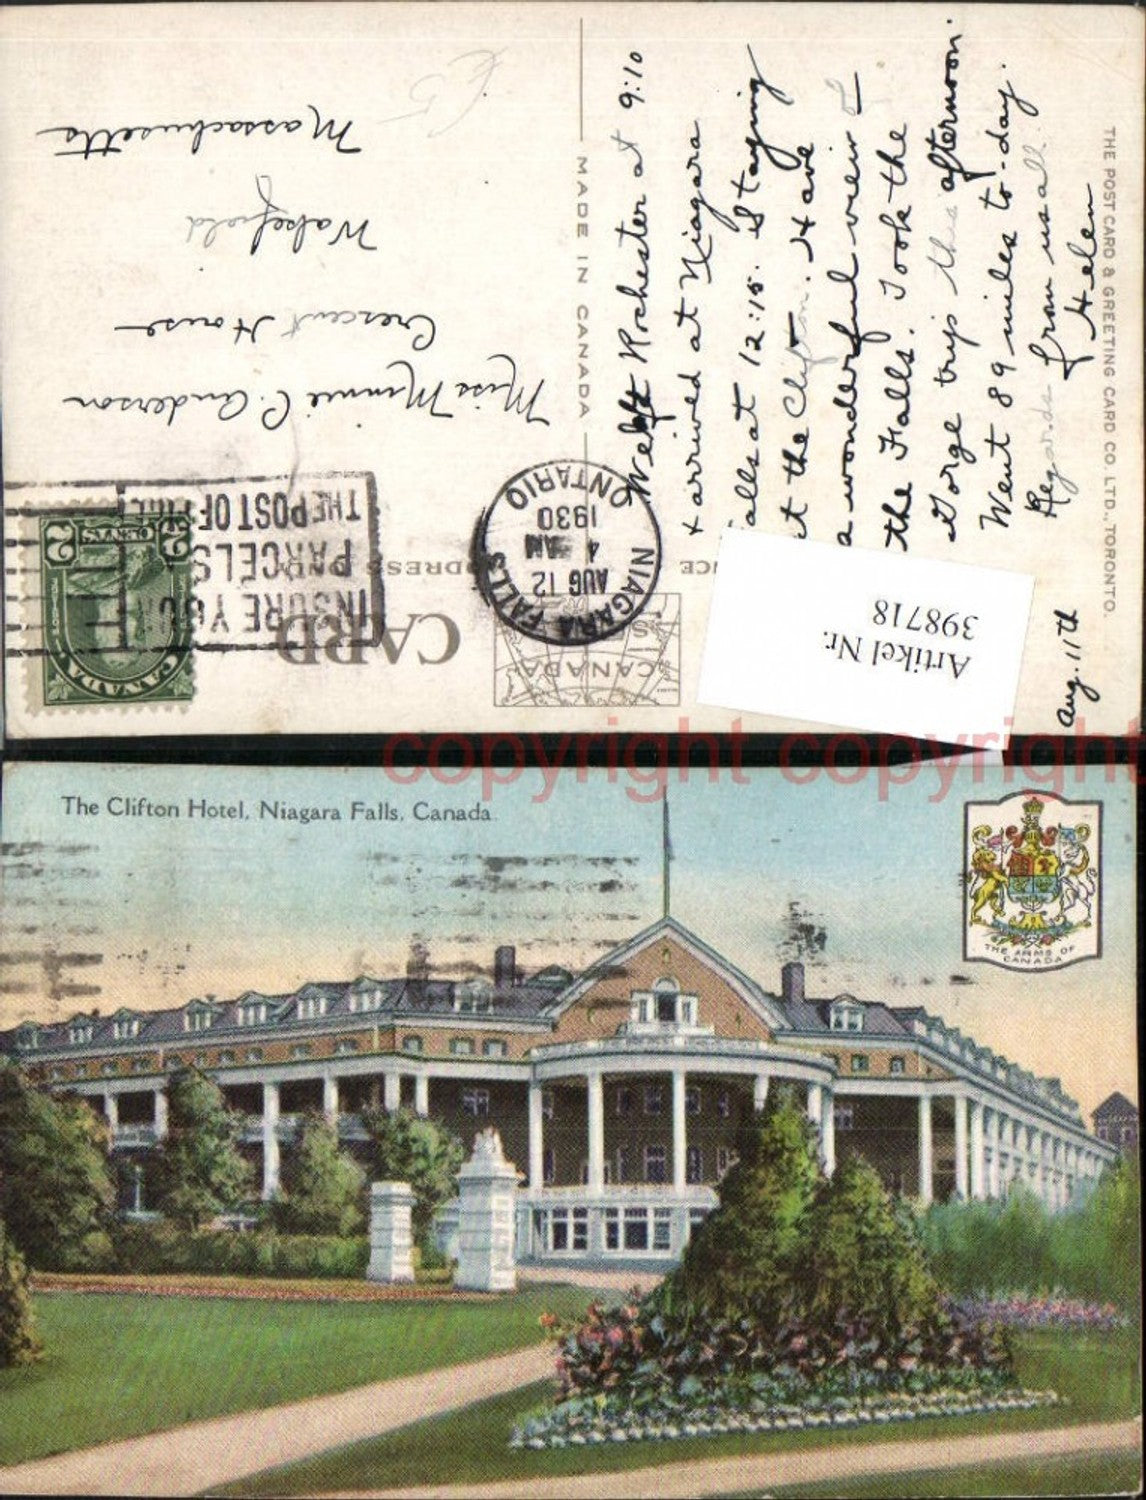 Aug. 11th
Weft Rochester at 9:10
+ arrived at Niagara
alls at 12:15. Staying
at the Clifton. Have
a wonderful view of
the Falls. Took the
Gorge trip this afternoon.
Went 89 miles to-day.
Regards from us all.
Helen
THE POST CARD & GREETING CARD CO. LTD., TORONTO.
MADE IN CANADA
CARD
ADDRESS ONLY
CANADA
Miss Minnie C. Anderson
Crescent House
Wakefield
Massachusetts
NIAGARA FALLS
AUG 12
4 AM
1930
ONTARIO
INSURE YOUR
PARCELS
THE POST OFFICE
CANADA
2 CENTS 2
Artikel Nr.
398718
copyright copyright
The Clifton Hotel, Niagara Falls, Canada.
THE ARMS OF
CANADA